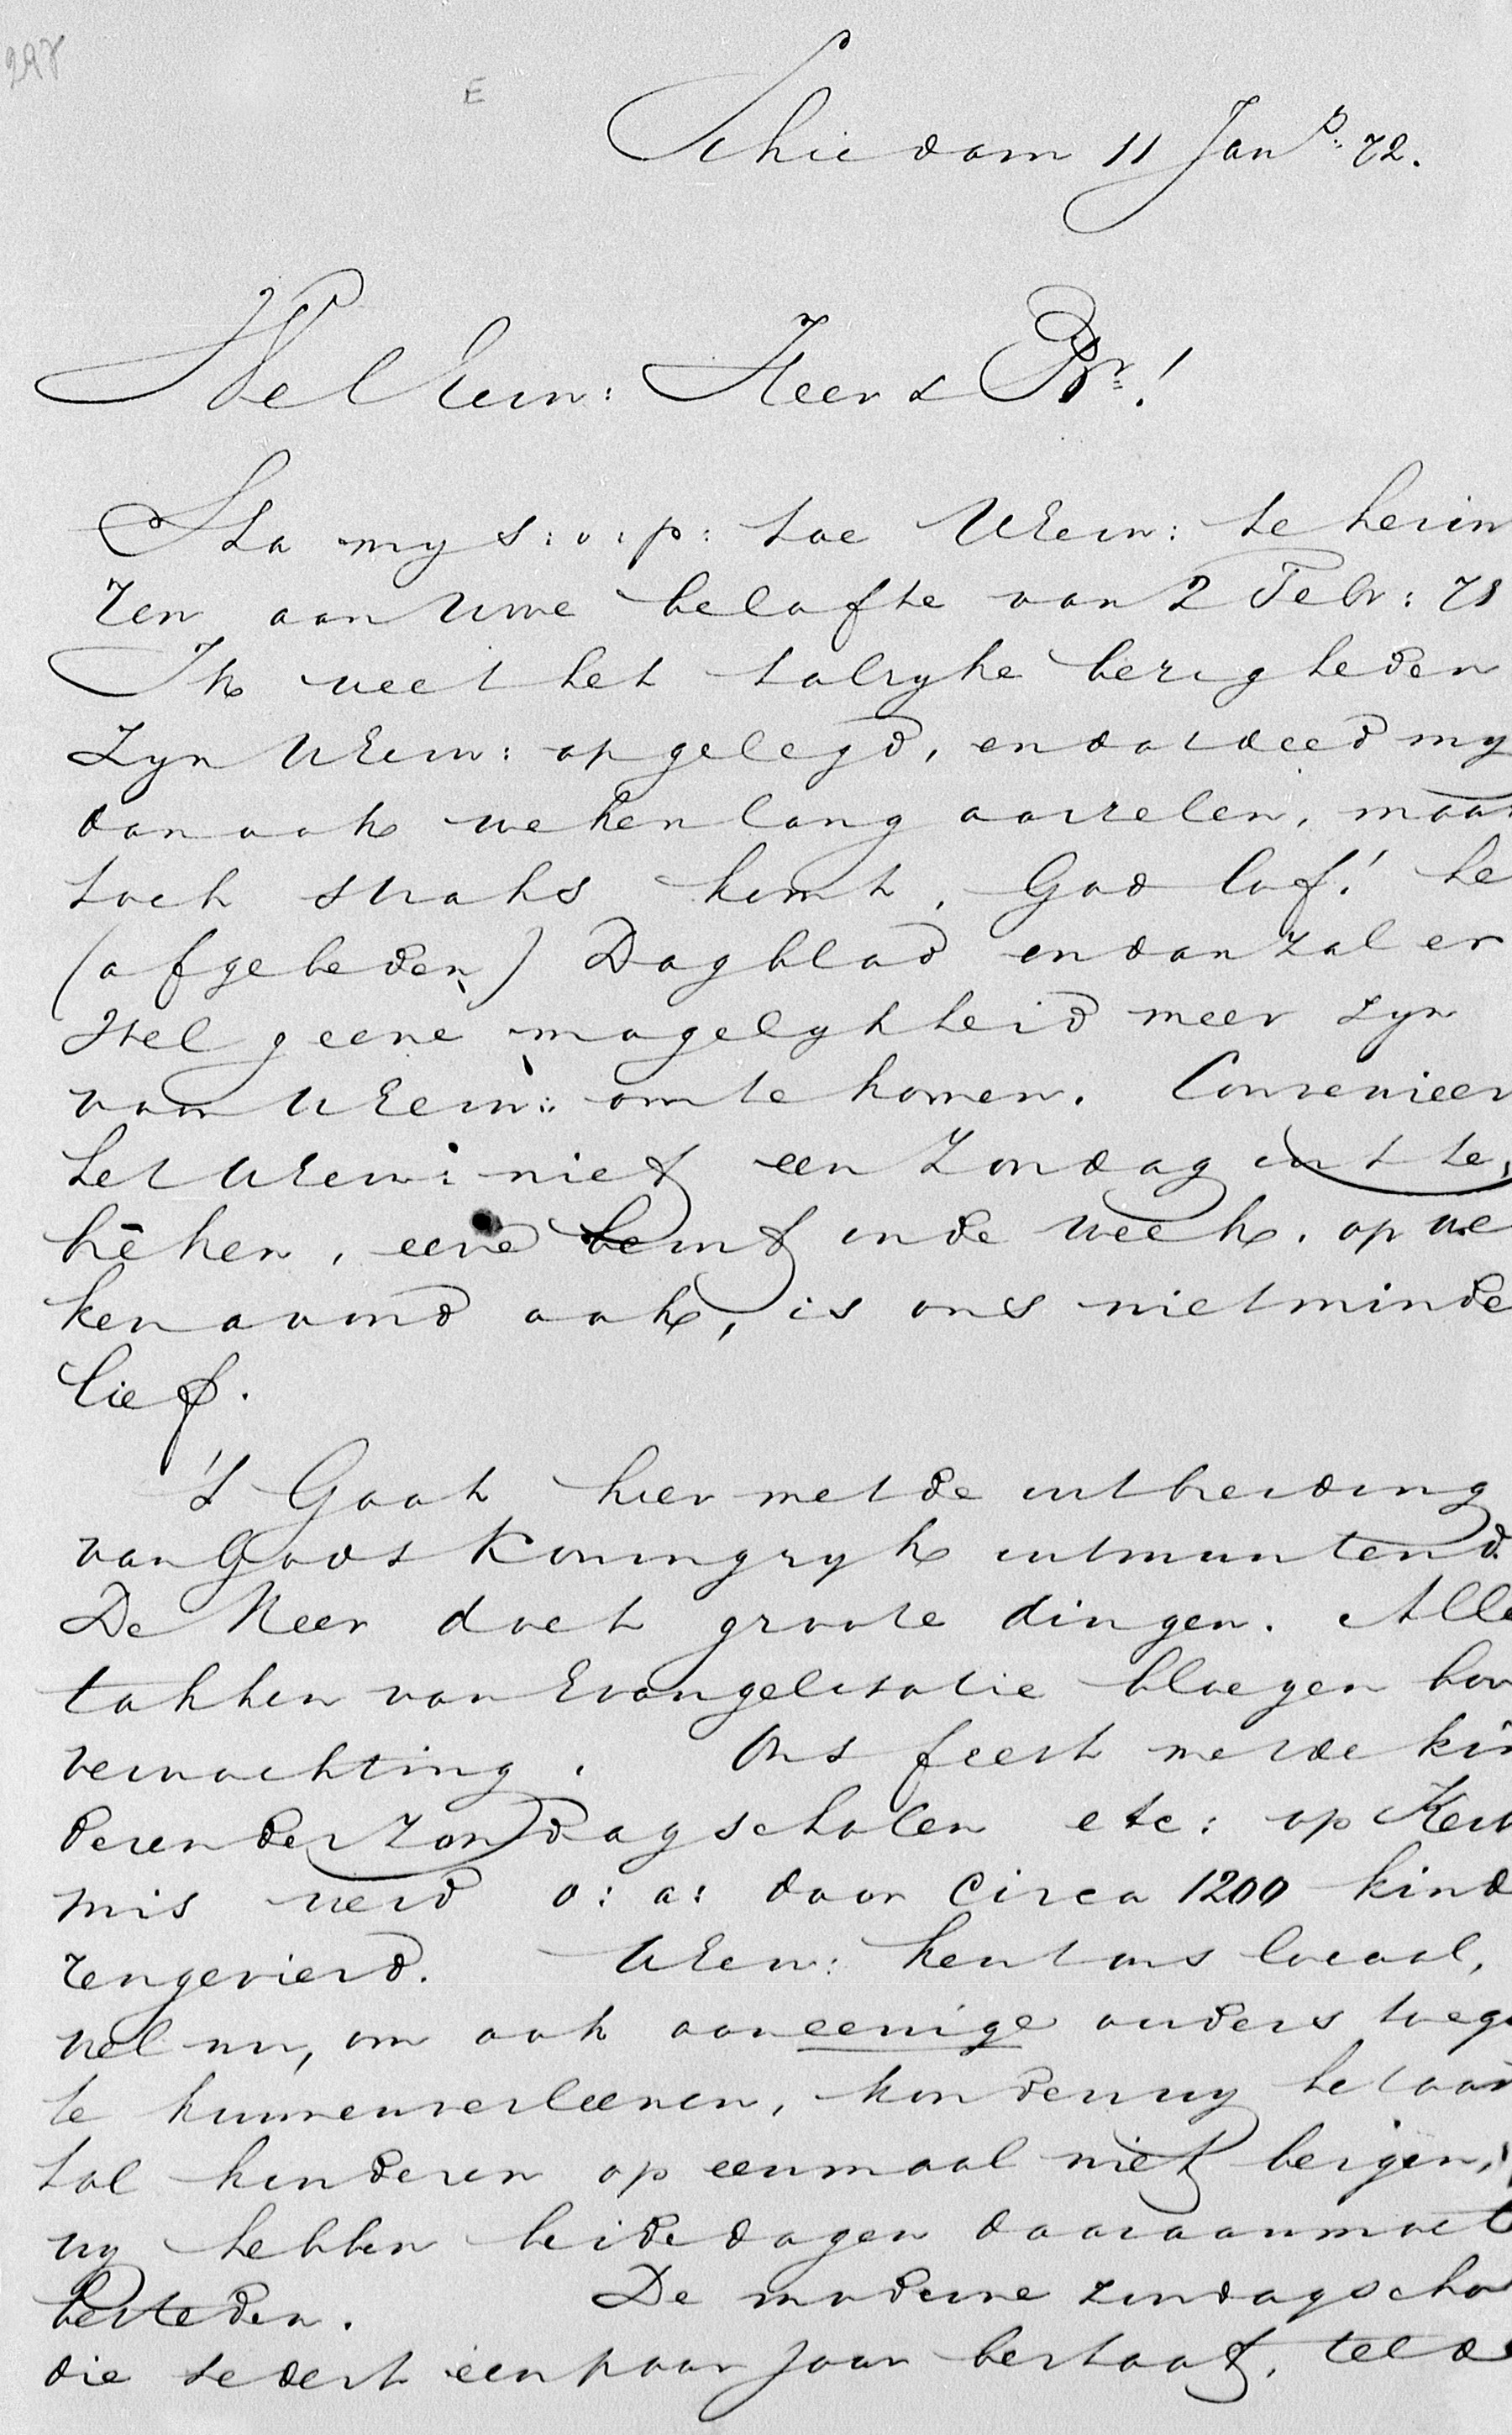 297
E
Schiedam 11 Janr: 72.
WelEerw: Heer & Br:!
Sta my s:v:p: toe UEerw: te herin
ren aan Uwe belofte van 2 Febr: 71
Ik weet het talryke bezigheden
zyn UEerw: opgelegd, en dat deed my
dan ook weken lang aarzelen, maar
toch straks komt, God lof! he
(afgebeden) Dagblad en dan zal er
wel geene mogelykheid meer zyn
van UEerw: om te komen. Convenieer
het UEerw: niet een Zondag uit te
breken, eene beurt in de week, op we
ken avond ook, is ons niet minde
lief.
't Gaat hier met de uitbreiding
van Gods Koningryk uitmuntend.
De Heer doet groote dingen. Alle
takken van Evangelisatie bloeyen bov
verwachting. Ons feest met de kin
deren der Zondagscholen etc: op Kers
mis werd o: a: door circa 1200 kind
ren gevierd. UEerw: kent ons locaal,
wel nu, om ook aan eenige ouders toega
te kunnen verleenen, konden wy het aan
tal kinderen op eenmaal niet bergen,
wy hebben beide dagen daaraan moet
besteden. De moderne zondagscho
die sedert een paar jaar bestaat, telde